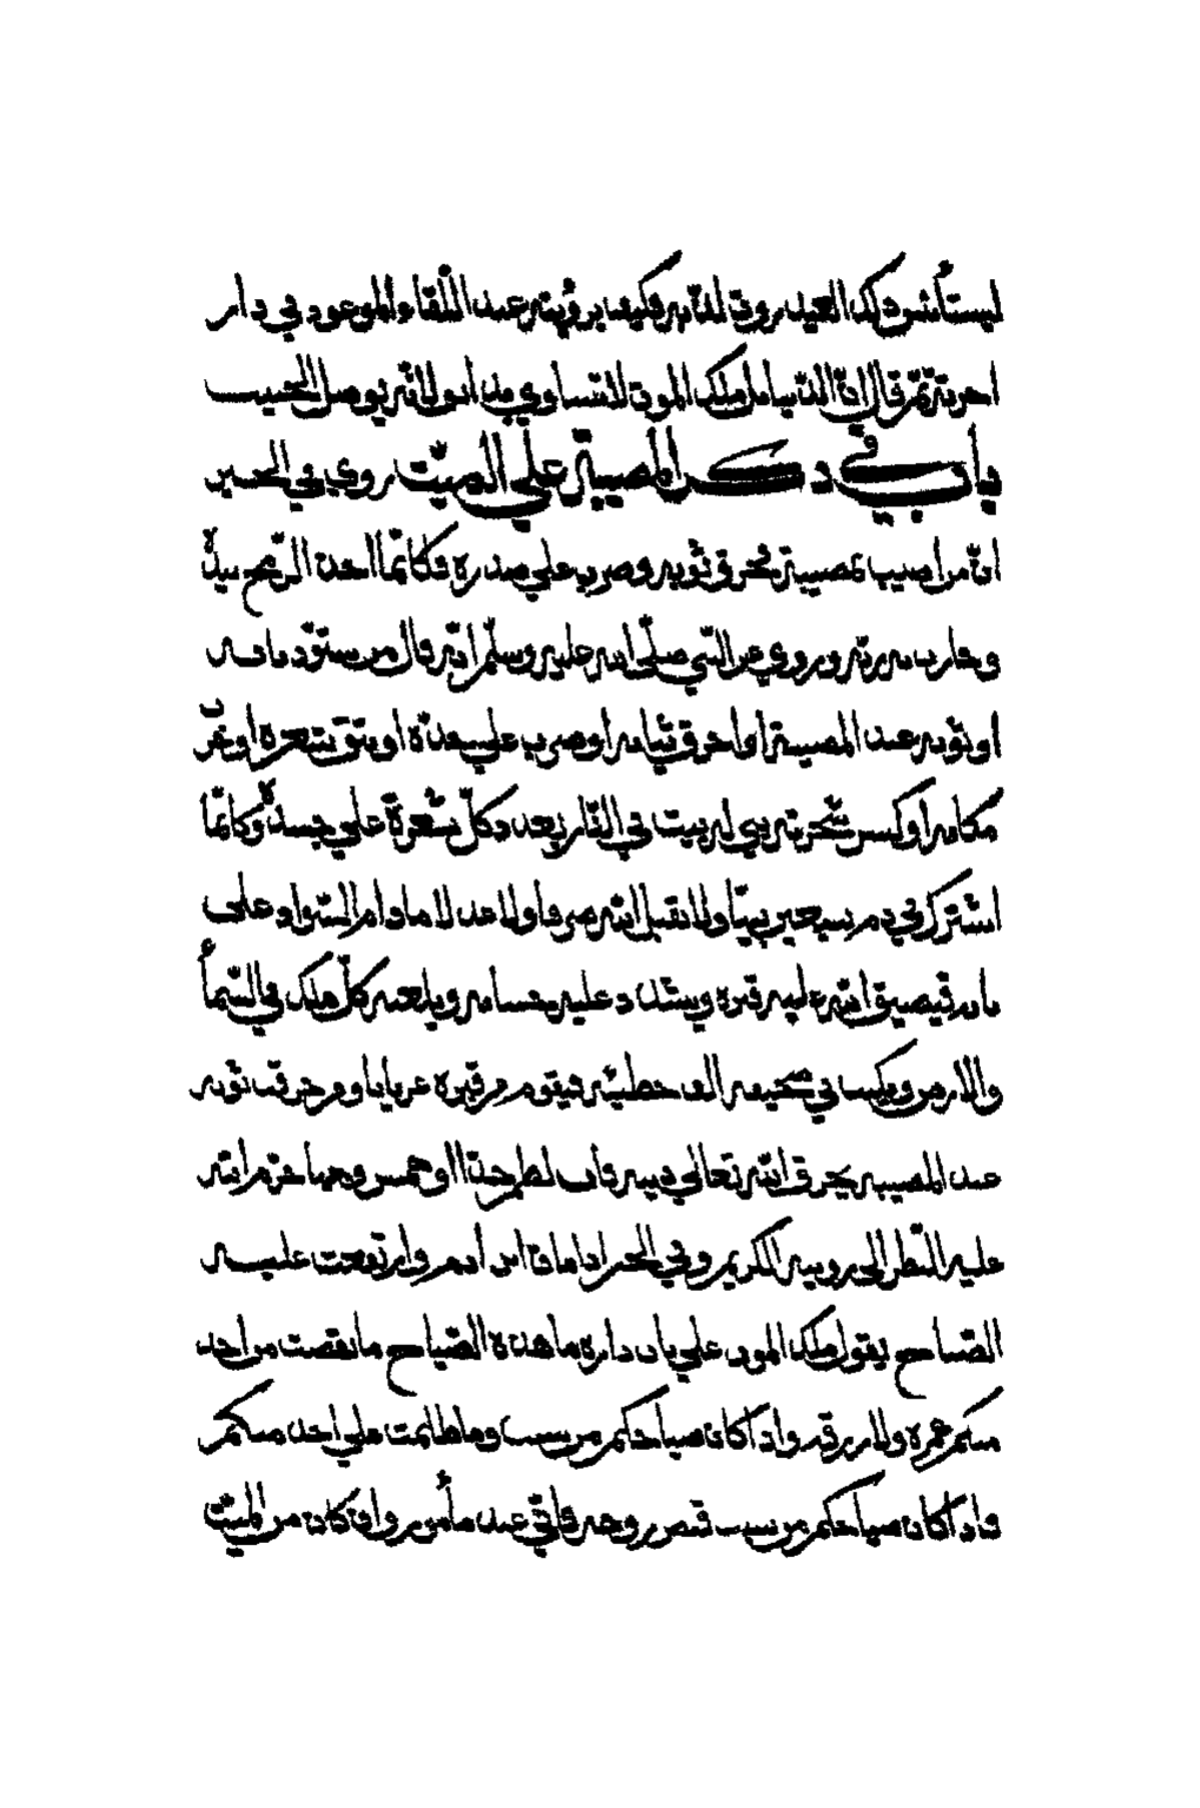 ليستأنس ذلك العبد روق لقائه فكيف برؤيته عند اللقاء الموعود في دار
اخرته ثم قال ان الدنيا مل ملك الموت لا تساوي لانه يوصل الحبيب
باب في ذكر المصيبة على الميت روي في الخبر
ان من اصيب بمصيبة فخرق ثوبه وضرب على صدره فكانما اخذ الرمح بيده
وحارب ربه وروي عن النبي صلى الله عليه وسلم انه قال من سود
او ثوبه عند المصيبة او اخرق ثيابه او ضرب على خده او شق شعره او
مكانه او كسر شجرة بني له بيت في النار بعدد كل شعرة على جسده وكانما
اشترك في دم سبعين نبيا ولا يقبل الله صرفا ولا عدلا ما دام السواد على
بابه فيضيق الله عليه قبره ويشتد عليه حسابه ويلعنه كل ملك في السماء
والارض ويكتب في صحيفته الف خطيئة فيقوم من قبره عريانا ومن خرق ثوبه
عند المصيبة يخرق الله تعالى دينه فان لطم خدا او خمش وجها حرم الله
عليه النظر الى وجهه الكريم وفي الخبر اذا مات ابن آدم وارتفعت عليه
الصياح يقول ملك الموت على باب داره ما هذه الصياح ما نقصت من احد
منكم عمره ولا رزقه وان كان صياحكم من سبب وما ظلمت على احد منكم
وان كان صياحكم من سبب قبض روحه فاني عبد مأمور وان كان من الميت